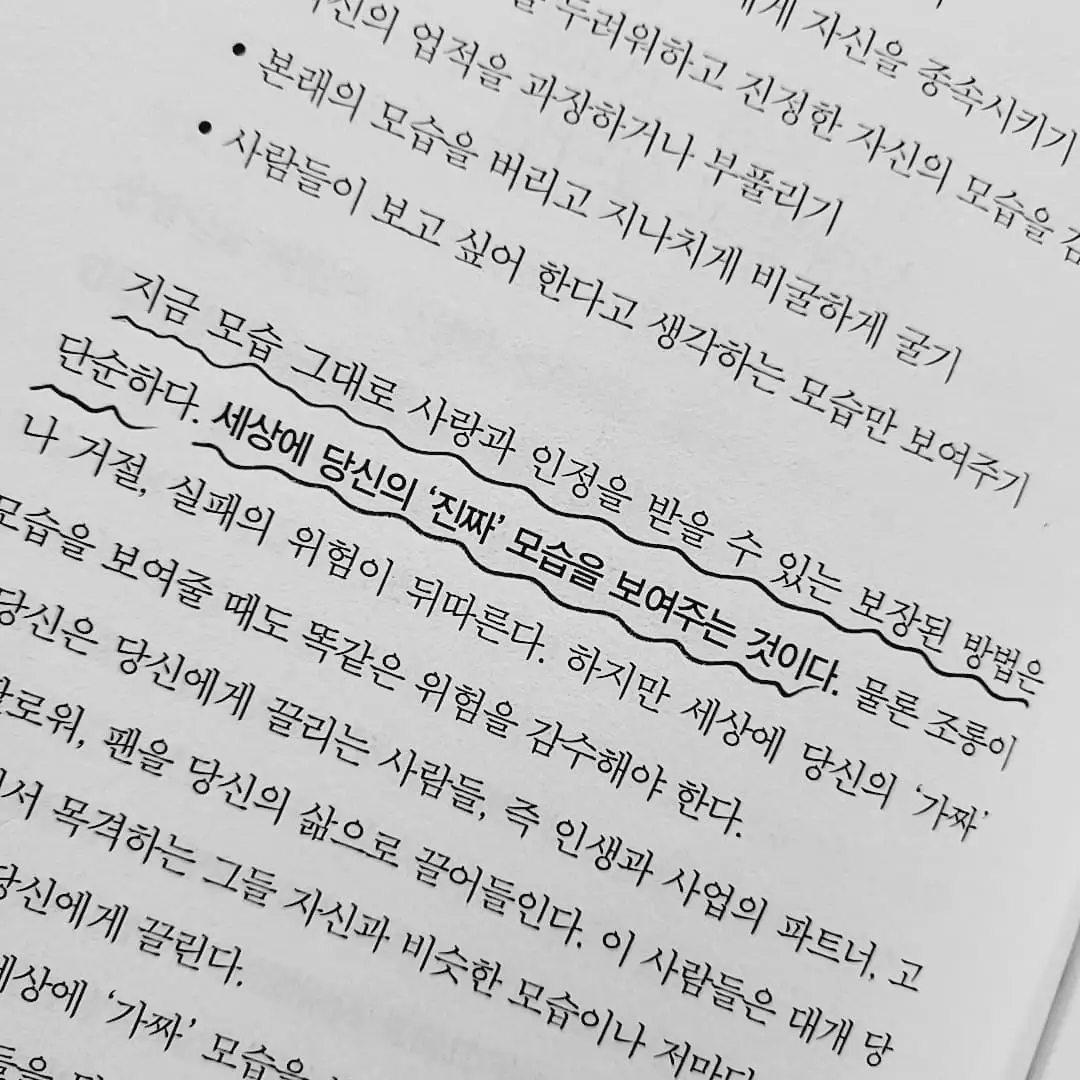 자신을 종속시키기
두려워하고 진정한 자신의 모습을
자신의 업적을 과장하거나 부풀리기
• 본래의 모습을 버리고 지나치게 비굴하게 굴기
• 사람들이 보고 싶어 한다고 생각하는 모습만 보여주기
지금 모습 그대로 사랑과 인정을 받을 수 있는 보장된 방법은
단순하다. 세상에 당신의 ‘진짜’ 모습을 보여주는 것이다. 물론 조롱이
나 거절, 실패의 위험이 뒤따른다. 하지만 세상에 당신의 ‘가짜’
모습을 보여줄 때도 똑같은 위험을 감수해야 한다.
당신은 당신에게 끌리는 사람들, 즉 인생과 사업의 파트너, 고
팔로워, 팬을 당신의 삶으로 끌어들인다. 이 사람들은 대개 당
서 목격하는 그들 자신과 비슷한 모습이나
당신에게 끌린다.
세상에 ‘가짜’ 모습을